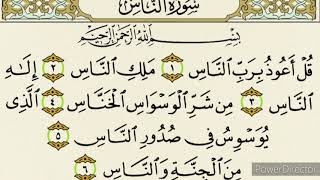 سُورَةُ النَّاسِ
بِسْمِ اللَّهِ الرَّحْمَٰنِ الرَّحِيمِ
قُلْ أَعُوذُ بِرَبِّ النَّاسِ ١ مَلِكِ النَّاسِ ٢ إِلَٰهِ
النَّاسِ ٣ مِن شَرِّ الْوَسْوَاسِ الْخَنَّاسِ ٤ الَّذِي
يُوَسْوِسُ فِي صُدُورِ النَّاسِ ٥
مِنَ الْجِنَّةِ وَالنَّاسِ ٦
PowerDirector